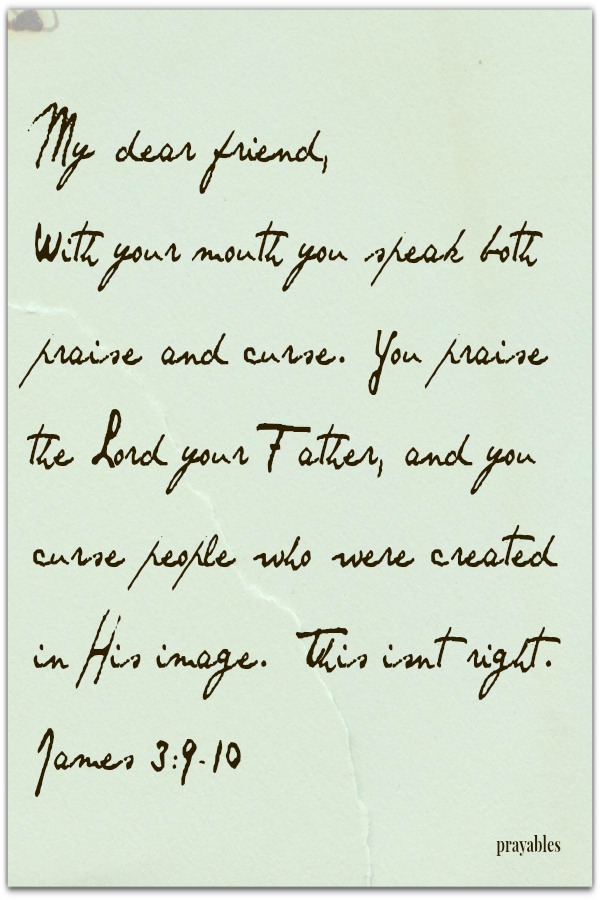 My dear friend,
With your mouth you speak both
praise and curse. You praise
the Lord your Father, and you
curse people who were created
in His image. This isnt right.
James 3:9-10
prayables